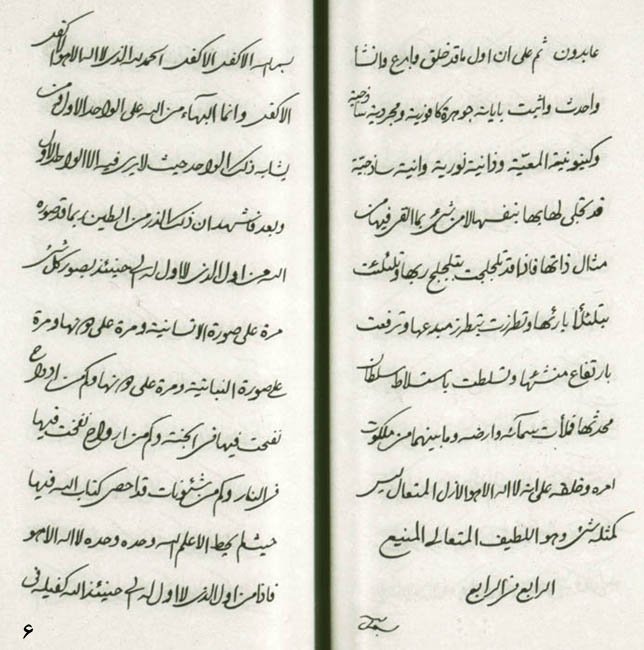 عابدون ثم على ان اول ما قد خلق وابدع وانشأ
واحدث واثبت باياته جوهرة كافورية ومجردية ساذجية
وكينونية المعيّة وذاتية نورية وانية ساذجيّة
قد تجلى لها بها بنفسها لا من شئ بما القى فيها من
مثال ذاتها فاذا قد تلجلجت بتلجلج ربها وتلئلئت
بتلئلأ بارئها وتطرزت بتطرز مبدعها وترفعت
بارتفاع منشئها وتسلطت باستلاط سلطان
محدثها فملأت سمآئه وارضه وما بينهما من ملكوت
امره وخلقه على انه لا اله الا هو الازل المتعال ليس
كمثله شئ وهو اللطيف المتعالى المنيع
الرابع فى الرابع
بسم الله الاكفى الاكفى الحمد لله الذى لا اله الا هو الاكفى
الاكفى وانما البهاء من الله على الواحد الاول ومن
يشابه ذلك الواحد حيث لا يرى فيه الا الواحد الاول
وبعد فاشهد ان ذلك الذر من الطين بما قد صوره
الله من اول الذى لا اول له الى حينئذ بصور كل شئ
مرة على صورة الانسانية ومرة على دونها ومرة
على صورة النباتية ومرة على دونها وكم من ارواح
نفخت فيها فى الجنة وكم من ارواح نفخت فيها
فى النار وكم من شئونات قد احصى كتاب الله فيها
حيث لم يحط الا علم الله وحده وحده لا اله الا هو
فاذا من اول الذى لا اول له الى حينئذ الله كفيله فى
۶